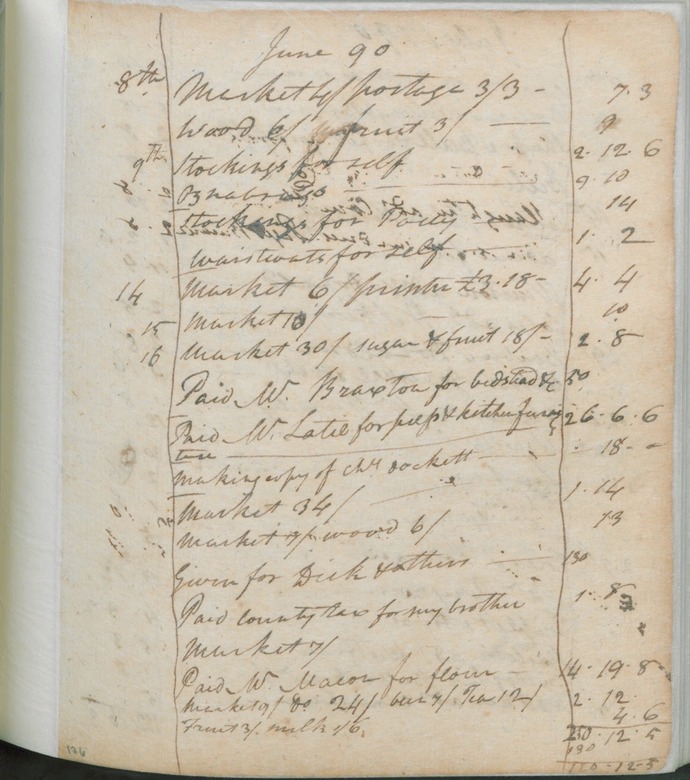 June 90
8th Market 4/ postage 3/3 - 7. 3
Wood 6/ fruit 3/ — 9
9th Stockings for self 2. 12. 6
Oznabrugs — 9 10
Stockings for Patty 14
Waistcoats for self 1. 2
14 Market 6/ £3.18- 4. 4
15 Market 10/ 10
16 Market 30/ sugar & fruit 18/- 2. 8
Paid Mr. Braxton for bedstead &c 50
Paid Mr. Latil for & kitchen furni 26. 6. 6
ture
making copy of Chs dockett — 18. -
Market 34/ 1. 14
Market 7/ wood 6/ 13
Given for Dick & others — 130
Paid county tax for my brother 1. 8
Market 7/
Paid Mr. Macon for flour — 14. 19. 8
Market 9/ do 24/ beer 7/ Tea 12/ 2. 12.
Fruit 3/. milk 1/6. 4. 6
250. 12. 5
130
120-12-5
136